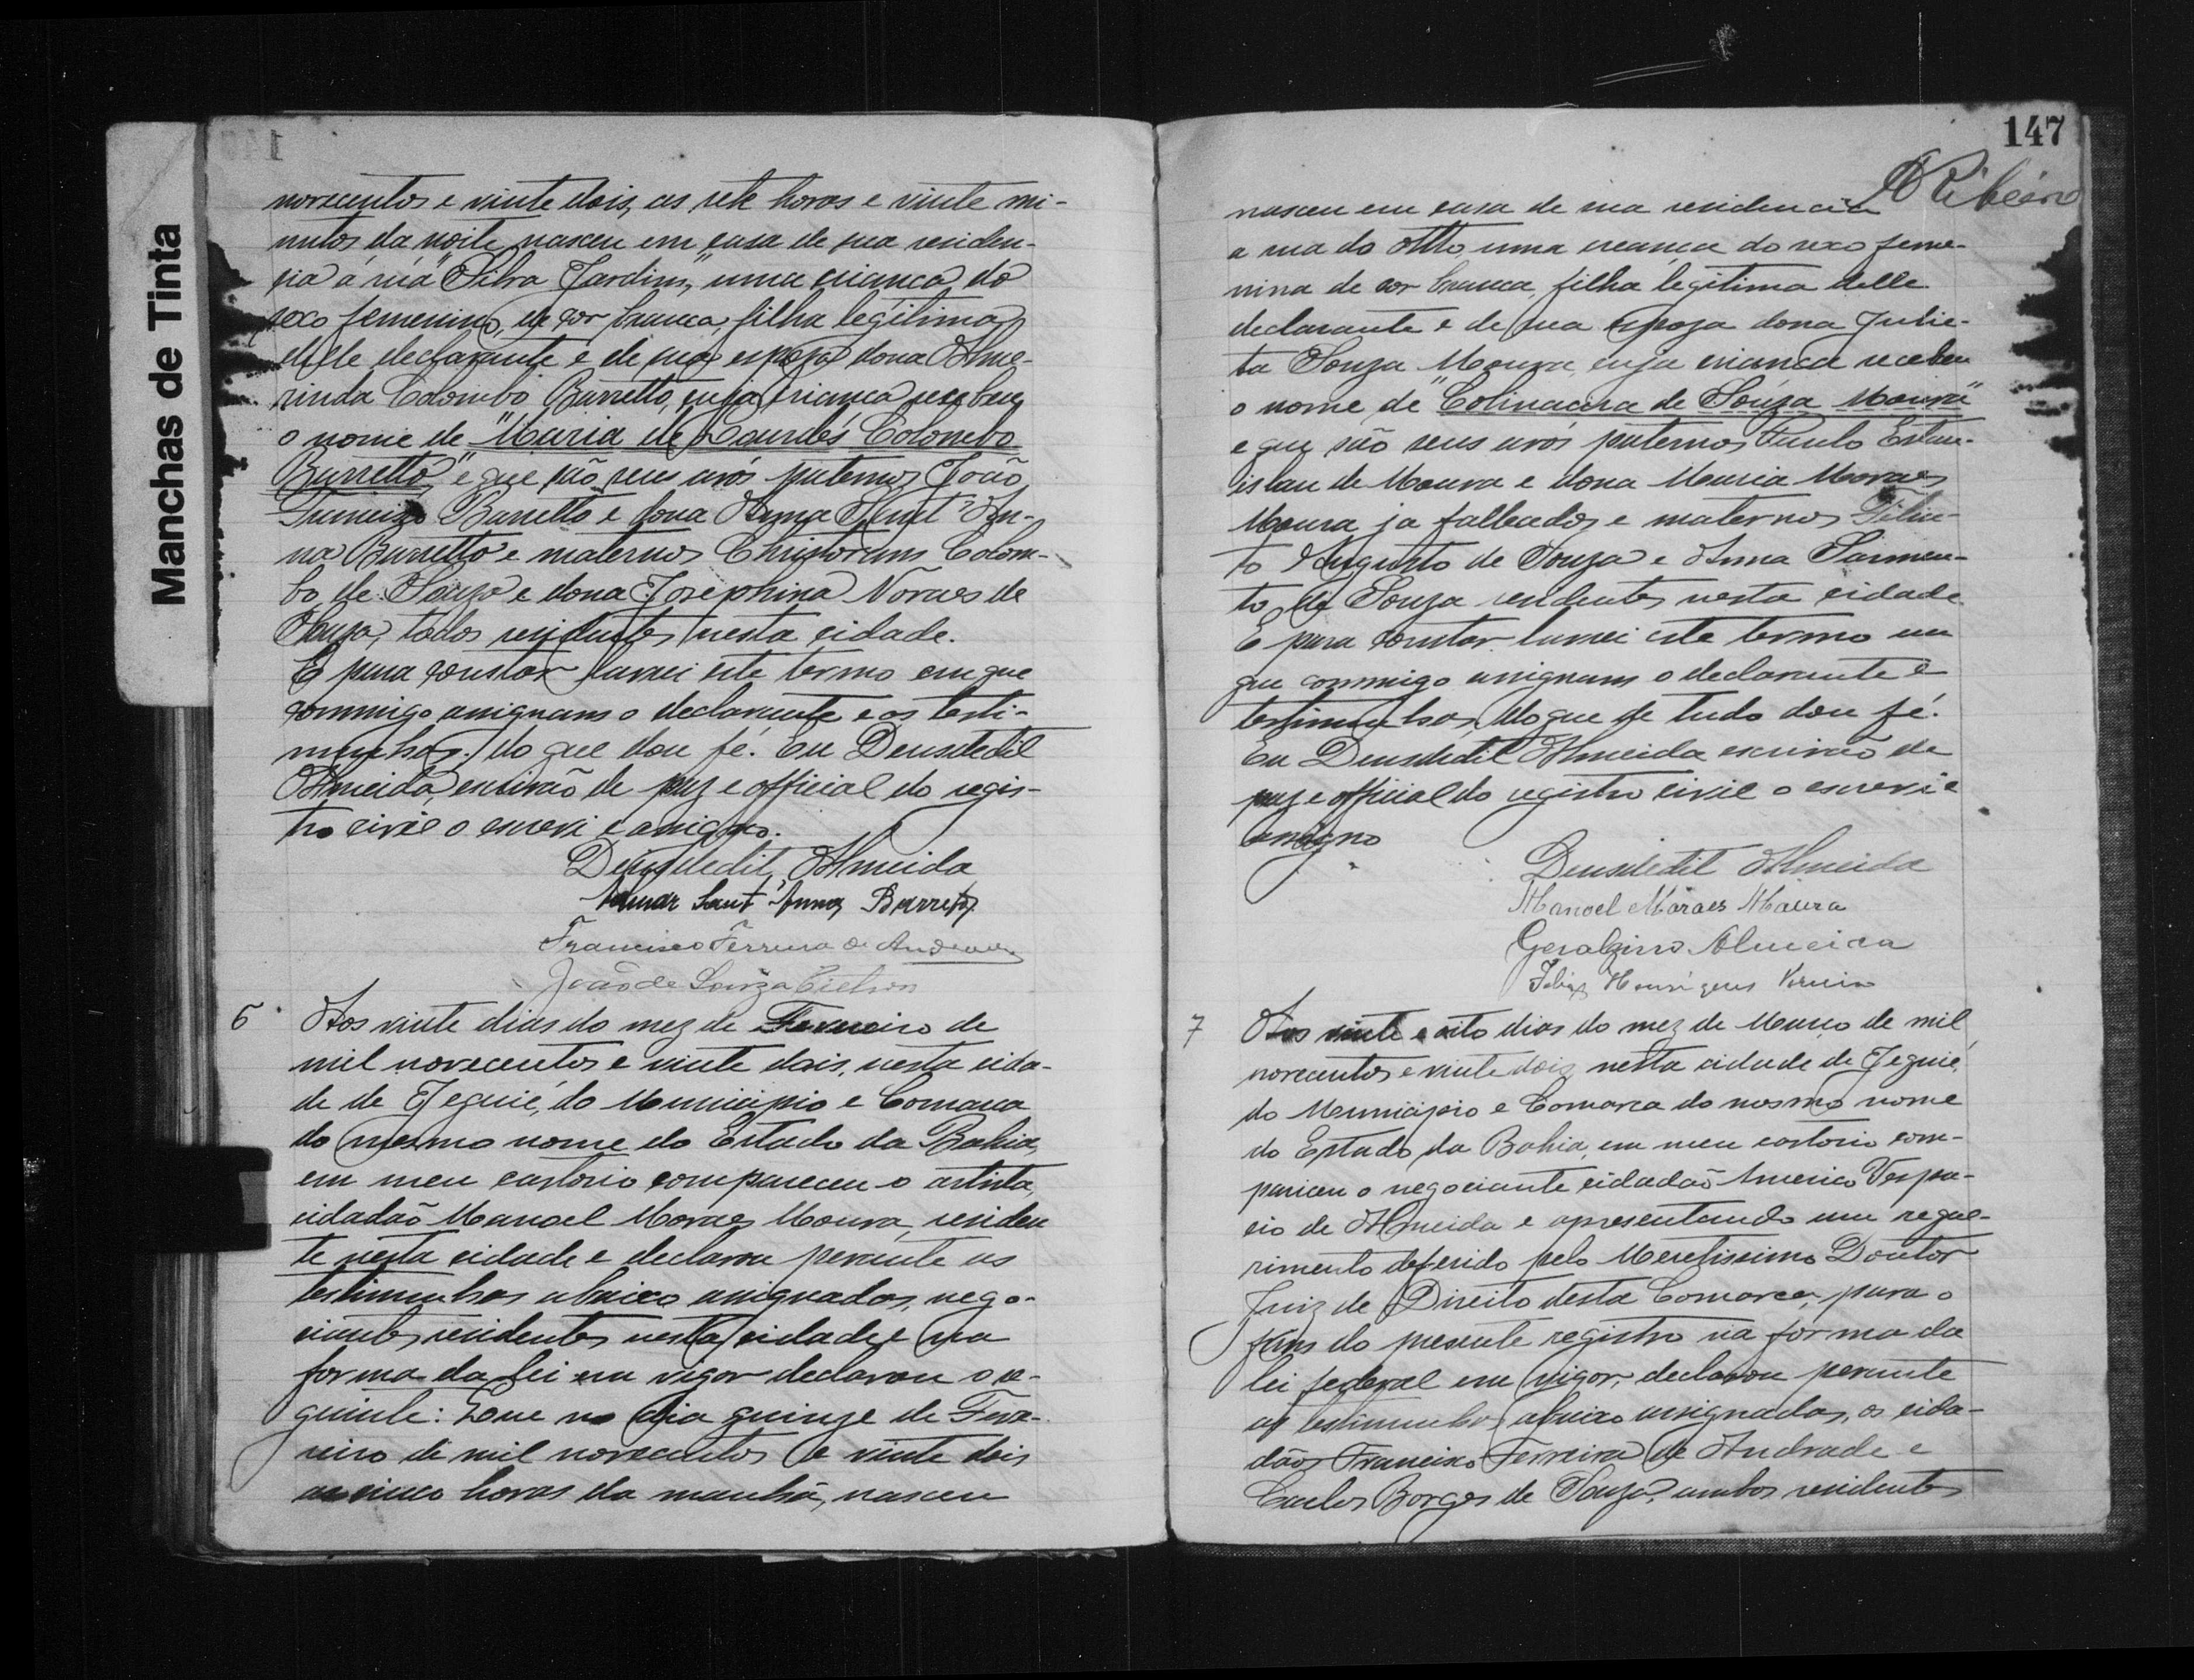 Manchas de Tinta
novecentos e vinte dois, as sete horas e vinte mi-
nutos da noite nasceu em casa de sua residen-
cia á rua "Silva Jardim," uma criança do
sexo femenino, de cor branca, filha legitima
delle declarante e de sua espoza dona Alme-
rinda Colombo Barretto, cuja criança recebeu
o nome de "Maria de Lourdes Colombo
Barretto" e que são seus avós paternos João
Barretto e dona Anna Sant'An-
na Barretto e maternos Colom-
bo de Souza e dona Josephina Novaes de
Souza, todos residentes nesta cidade.
E para constar lavrei este termo em que
commigo assignam o declarante e as testi-
munhas, do que dou fé. Eu Deusdedit
Almeida, escrivão de paz e official do regis-
tro civil o escrevi e assigno.
Deusdedit Almeida
Sant'Anna Barretto
Francisco Ferreira de Andrade
João de Souza
6 Aos vinte dias do mez de Fevereiro de
mil novecentos e vinte dois, nesta cida-
de de Jequié, do Municipio e Comarca
do mesmo nome do Estado da Bahia,
em meu cartorio compareceu o artista,
cidadão Manoel Moraes Moura, residen
te nesta cidade e declarou perante as
testimunhas abaixo assignadas, nego-
ciantes residentes nesta cidade e na
forma da lei em vigor declarou o se-
guinte: Que no dia quinze de Feve-
reiro de mil novecentos e vinte dois
as cinco horas da manhã, nasceu
147
ARibeiro
nasceu em casa de sua residencia
a rua do Alto uma creança do sexo feme-
nina de cor branca, filha legitima delle
declarante e de sua espoza dona Julie-
ta Souza Moura, cuja criança recebeu
o nome de "Colinacira de Souza Moura"
e que são seus avós paternos Paulo Estan-
islau de Moura e dona Maria Moraes
Moura ja fallecidos e maternos Filin-
to Augusto de Souza e Anna Sarmen-
to de Souza residentes nesta cidade.
E para constar lavrei este termo em
que commigo assignam o declarante e
testimunhas, do que de tudo dou fé.
Eu Deusdedit Almeida escrivão de
paz e official do registro civil o escrevi e
assigno
Deusdedit Almeida
Manoel Moraes Moura
Geralzino Almeida
7 Aos vinte e oito dias do mez de Março de mil
novecentos e vinte dois, nesta cidade de Jequié,
do Municipio e Comarca do mesmo nome
do Estado da Bahia, em meu cartorio com-
pareceu o negociante cidadão Americo Vespu-
cio de Almeida e apresentando um reque-
rimento deferido pelo Meretissimo Doutor
Juiz de Direito desta Comarca, para o
fins do presente registro na forma da
lei federal em vigor, declarou perante
as testimunhas abaixo assignadas, os cida-
dãos Francisco Ferreira de Andrade e
Carlos Borges de Souza, ambos residentes